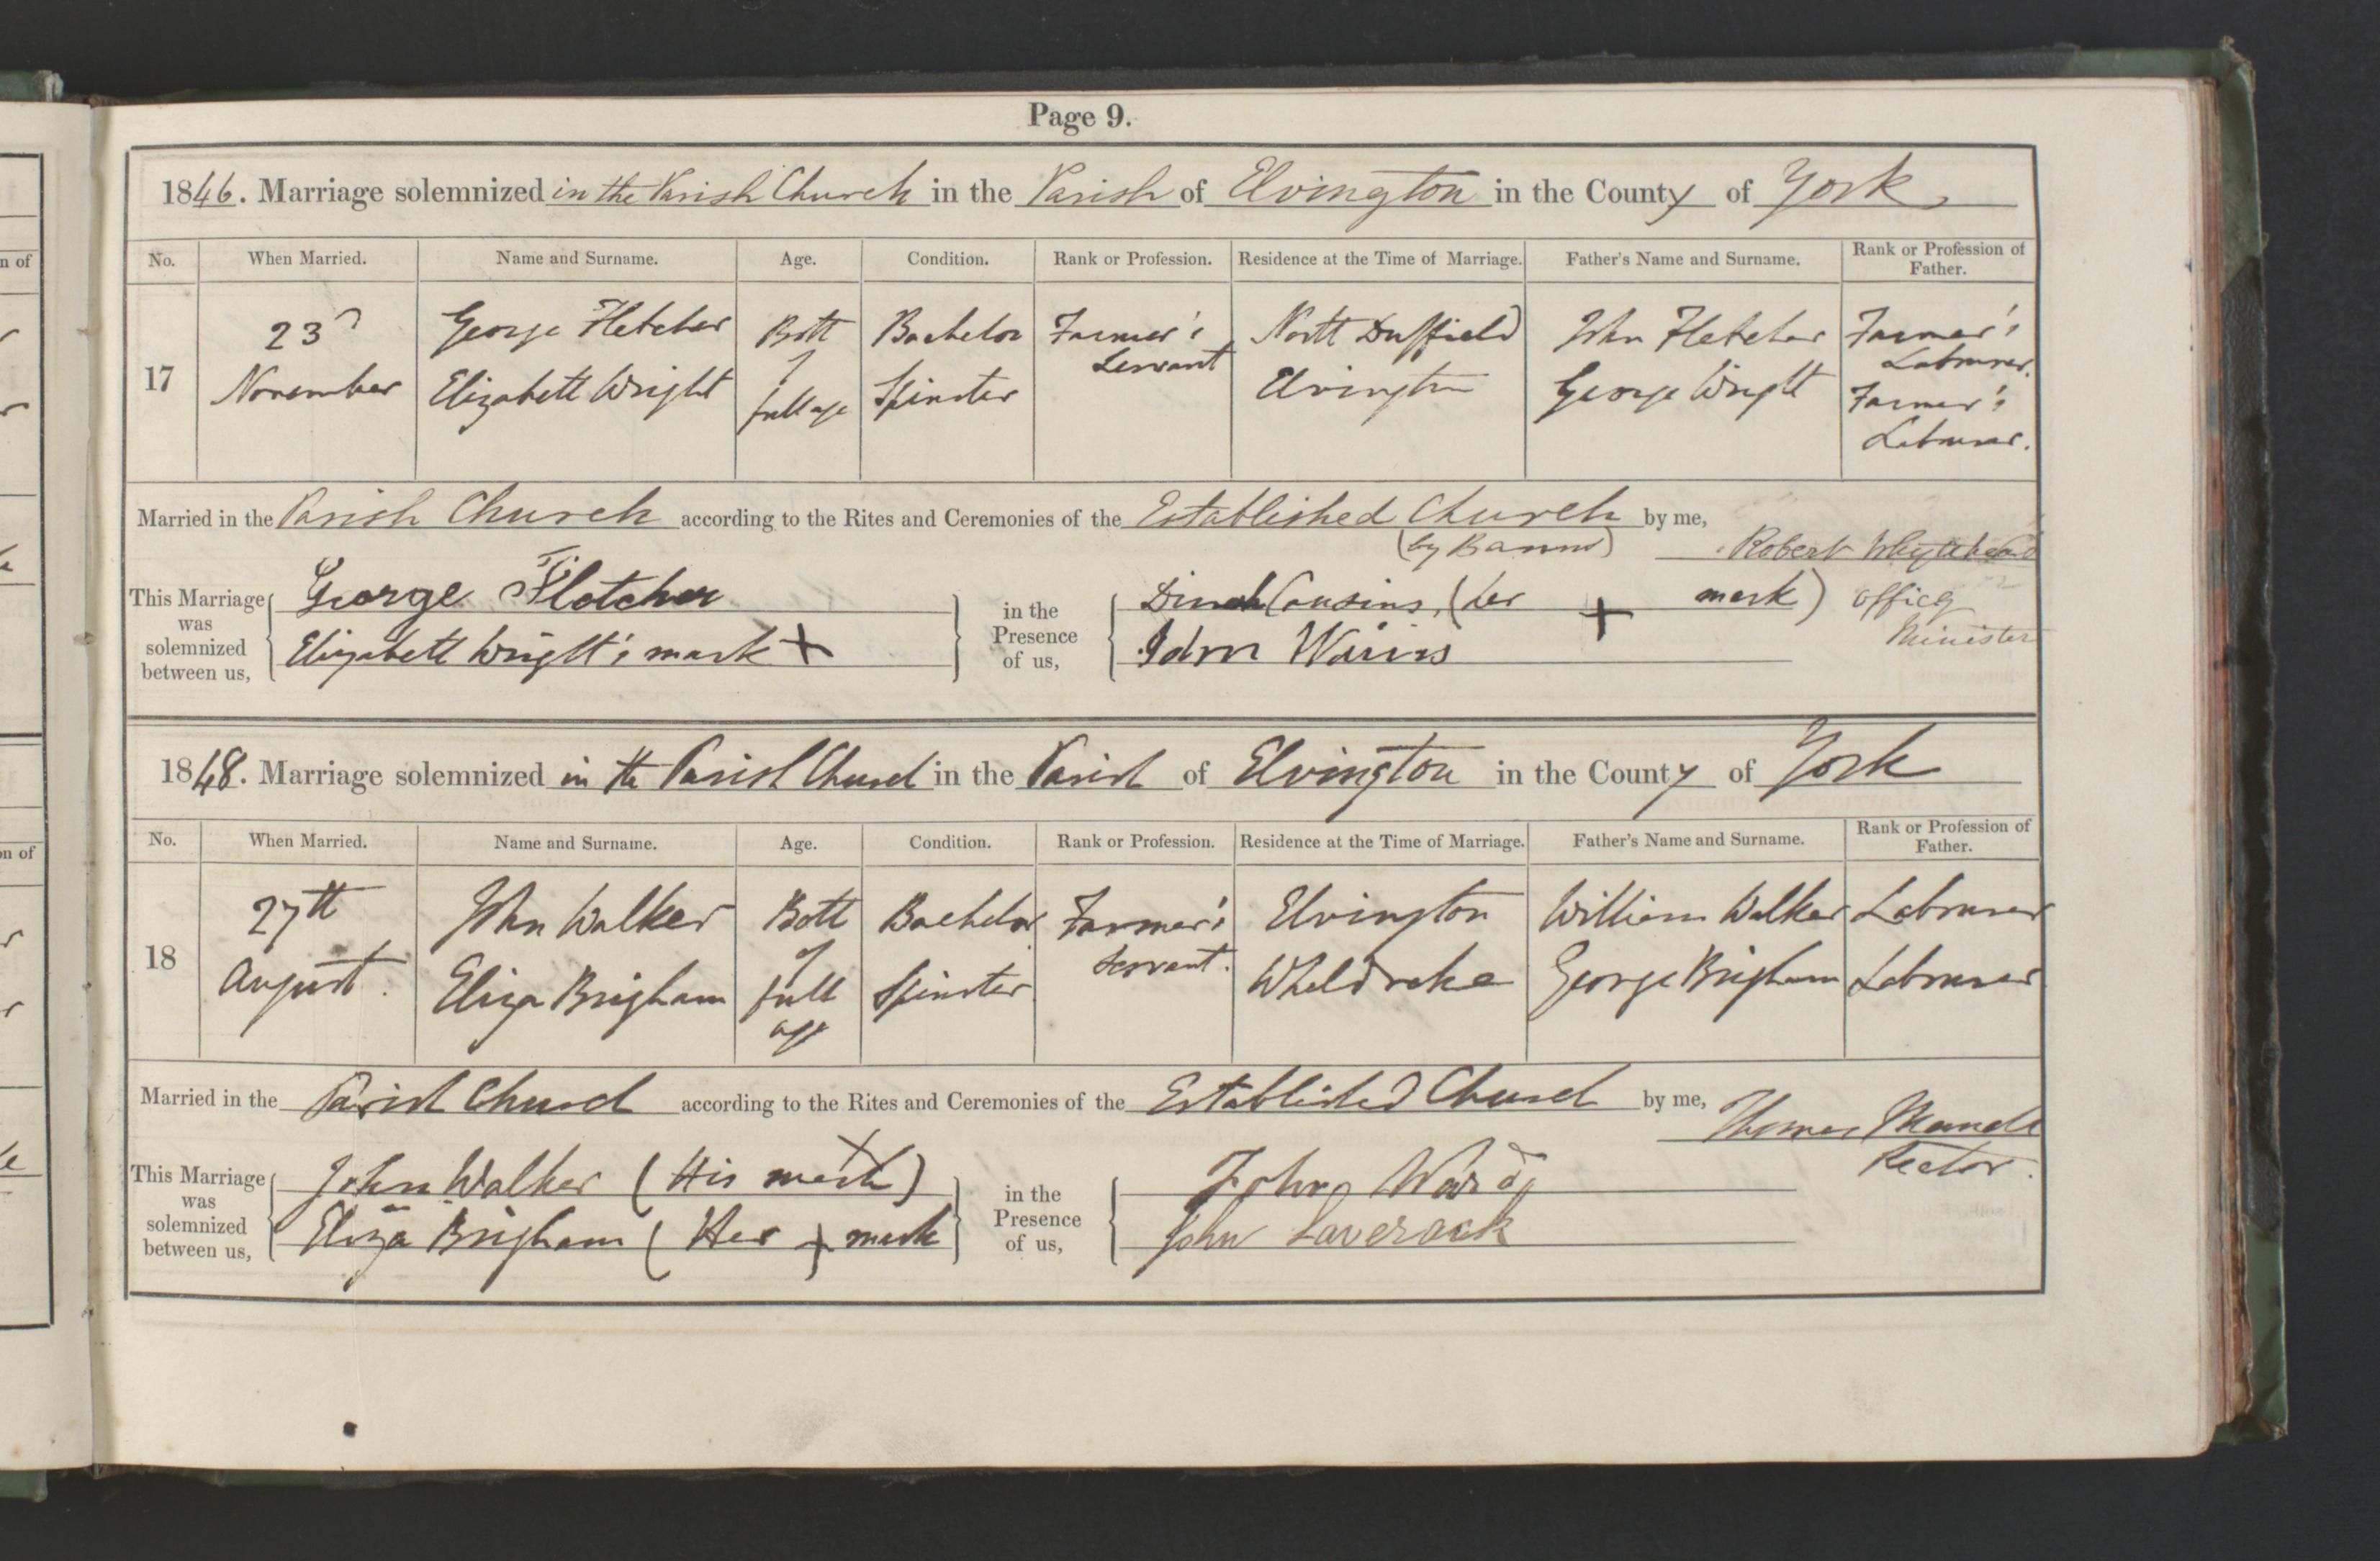 Page 9.
1846. Marriage solemnized in the Parish Church in the Parish of Elvington in the County of York
No. When Married. Name and Surname. Age. Condition. Rank or Profession. Residence at the Time of Marriage. Father's Name and Surname. Rank or Profession of Father.
17 23d November George Fletcher Both of full age Bachelor Farmer's Servant North Duffield John Fletcher Farmer's Labourer.
Elizabeth Wright Spinster Elvington George Wright Farmer's Labourer.
Married in the Parish Church according to the Rites and Ceremonies of the Established Church by me,
(by Banns) Robert Whytehead
This Marriage was solemnized between us, George Fletcher in the Presence of us, Dinah Cousins, (her + mark) Officg
Elizabeth Wright's mark + Minister
1848. Marriage solemnized in the Parish Church in the Parish of Elvington in the County of York
No. When Married. Name and Surname. Age. Condition. Rank or Profession. Residence at the Time of Marriage. Father's Name and Surname. Rank or Profession of Father.
18 27th August. John Walker Both of full age Bachelor Farmer's Servant. Elvington William Walker Labourer
Eliza Brigham Spinster Wheldrake George Brigham Labourer
Married in the Parish Church according to the Rites and Ceremonies of the Established Church by me,
Thomas
This Marriage was solemnized between us, John Walker (His X mark) in the Presence of us, John Ward Rector.
Eliza Brigham (Her + mark John Laverack
n of
on of